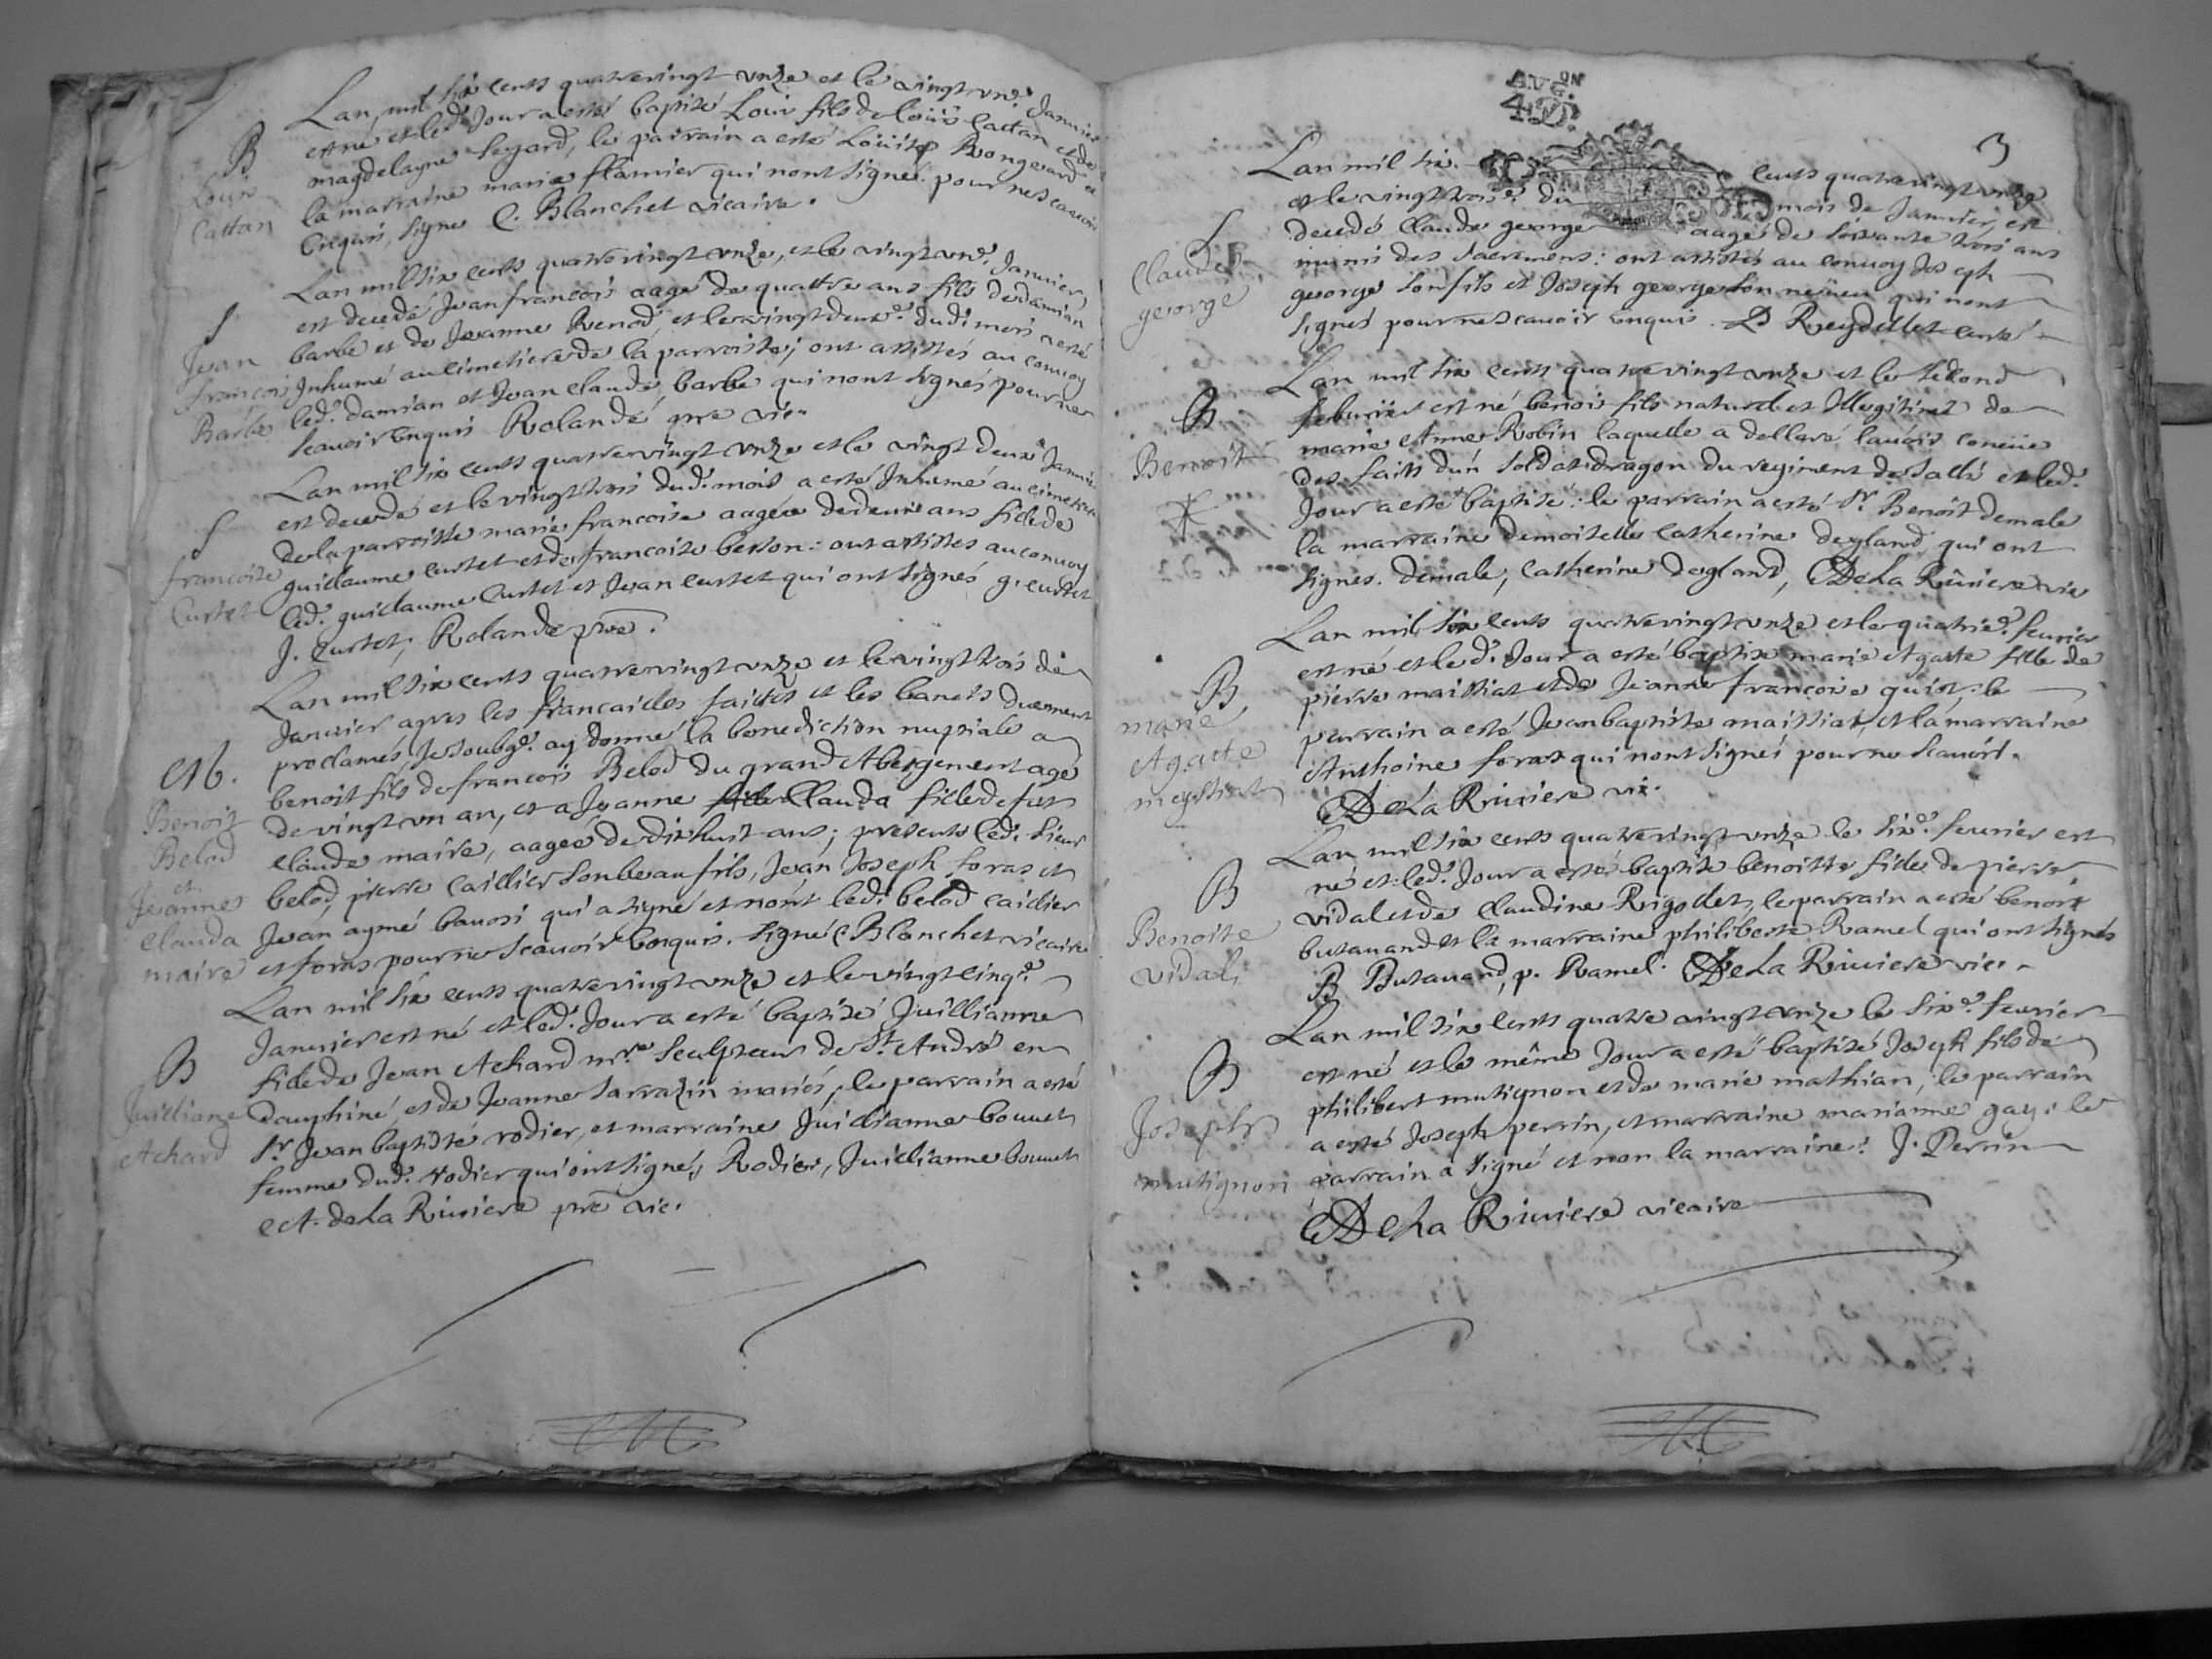 B
Louis
Cattan
Lan mil six cents quatrevingt unze et le vingt un.e Janvier
est né et led. Jour a esté baptisé Louis fils de loüis Cattan et de
magdelayne Seyard, le parrain a esté Loüis Rongevard et
la marraine marie flamier qui nont signé pour ne scavoir
Enquis, signe C. Blanchet vicaire.
S
Jean
françois
Barbe
Lan mil six cents quatrevingt unze, et le vingt un.e Janvier
est decedé Jean françois aagé de quattre ans fils de damian
barbe et de Jeanne Renod, et le vingt deux.e dud. mois a esté
Inhumé au cimetiere de la parroisse; ont assistés au convoy
led. damian et Jean claude barbe qui nont signés pour ne
scavoir Enquis Rolande pre vic.
S
francoise
Curtet
Lan mil six cents quatrevingt unze et le vingt deux Janvier
est decedé et le vingt trois dud. mois a esté Inhumé au cimetiere
de la parroisse marie francoise aagée de deux ans fille de
guillaume curtet et de francoise berson: ont assistés au convoy
led. guillaume Curtet et Jean curtet qui ont signés g. curtet
J. Curtet, Rolande pre.
M.
Benoit
Belod
et
Jeanne
Clauda
maire
Lan mil six cents quatrevingt unze et le vingt trois de
Janvier apres les fiancailles faittes et les bancts duement
proclamés, Je soubg.e ay donné la benediction nuptiale a
benoit fils de francois Belod du grand Abergement agé
de vingt un an, et a Jeanne fille Clauda fille de fut
claude maire, aageé de dixhuit ans; presents led. sieur
belod, pierre Caillier son beau fils, Jean Joseph foras et
Jean aymé bavosi qui a signé et nont led. belod caillier
et foras pour ne scavoir Enquis. signé C Blanchet vicaire
B
Juilliane
Achard
Lan mil six cents quatrevingt unze et le vingt cinq.e
Janvier est né et led. Jour a esté baptisé Juillianne
fille de Jean Achard m.re sculpteur de St. André en
dauphiné et de Jeanne sarrazin mariés, le parrain a esté
Sr. Jean baptiste rodier, et marraine Juillianne bouvet
femme dud. rodier qui ont signé, Rodier, Juillianne bouvet
A. de La Riviere pre vic.
AVG.ON
4.D.
3
S
Claude
george
Lan mil six cents quatrevingt unze
et le vingt trois.e du mois de Janvier, est
decedé Claude george aagé de soixante trois ans
munis des sacremens: ont assistés au convoy Joseph
george son fils et Joseph george son neveu qui nont
signés pour ne scavoir enquis. D Reydellet curé
B
Benoit
Lan mil six cents quatrevingt unze et le second
feburier est né benoit fils naturel et Illegitime de
marie Anne Robin laquelle a dellaré lavoir conceüe
des faits dún soldat dragon du regiment de salli et led.
Jour a esté baptisé: le parrain a esté Sr. Benoit demale
la marraine demoiselle Catherine degland qui ont
signés. demale, Catherine degland, De La Riviere vic
B
marie
Agatte
meyssiat
Lan mil six cents quatrevingt unze et le quatrie.e fevrier
est né et led. Jour a esté baptisé marie Agatte fille de
pierre maissiat et de Jeanne francoise guiot; le
parrain a esté Jean baptiste maissiat, et la marraine
Anthoine foras qui nont signés pour ne scavoir.
De La Riviere vic.
B
Benoite
vidal
Lan mil six cents quatrevingt unze le six.e fevrier est
né et led. Jour a esté baptisé benoitte fille de pierre
vidal et de Claudine Rigollet, le parrain a esté benoit
butavand et la marraine philiberte Ramel qui ont signés
B Butavand, p. Ramel. De La Riviere vic.
B
Joseph
mutignon
Lan mil six cents quatre vingt unze le six.e fevrier
est né et le même Jour a esté baptisé Joseph fils de
philibert mutignon et de marie mathian, le parrain
a esté Joseph perrin, et marraine marianne gay: le
parrain a signé et non la marraine. J. Perrin
De La Riviere vicaire